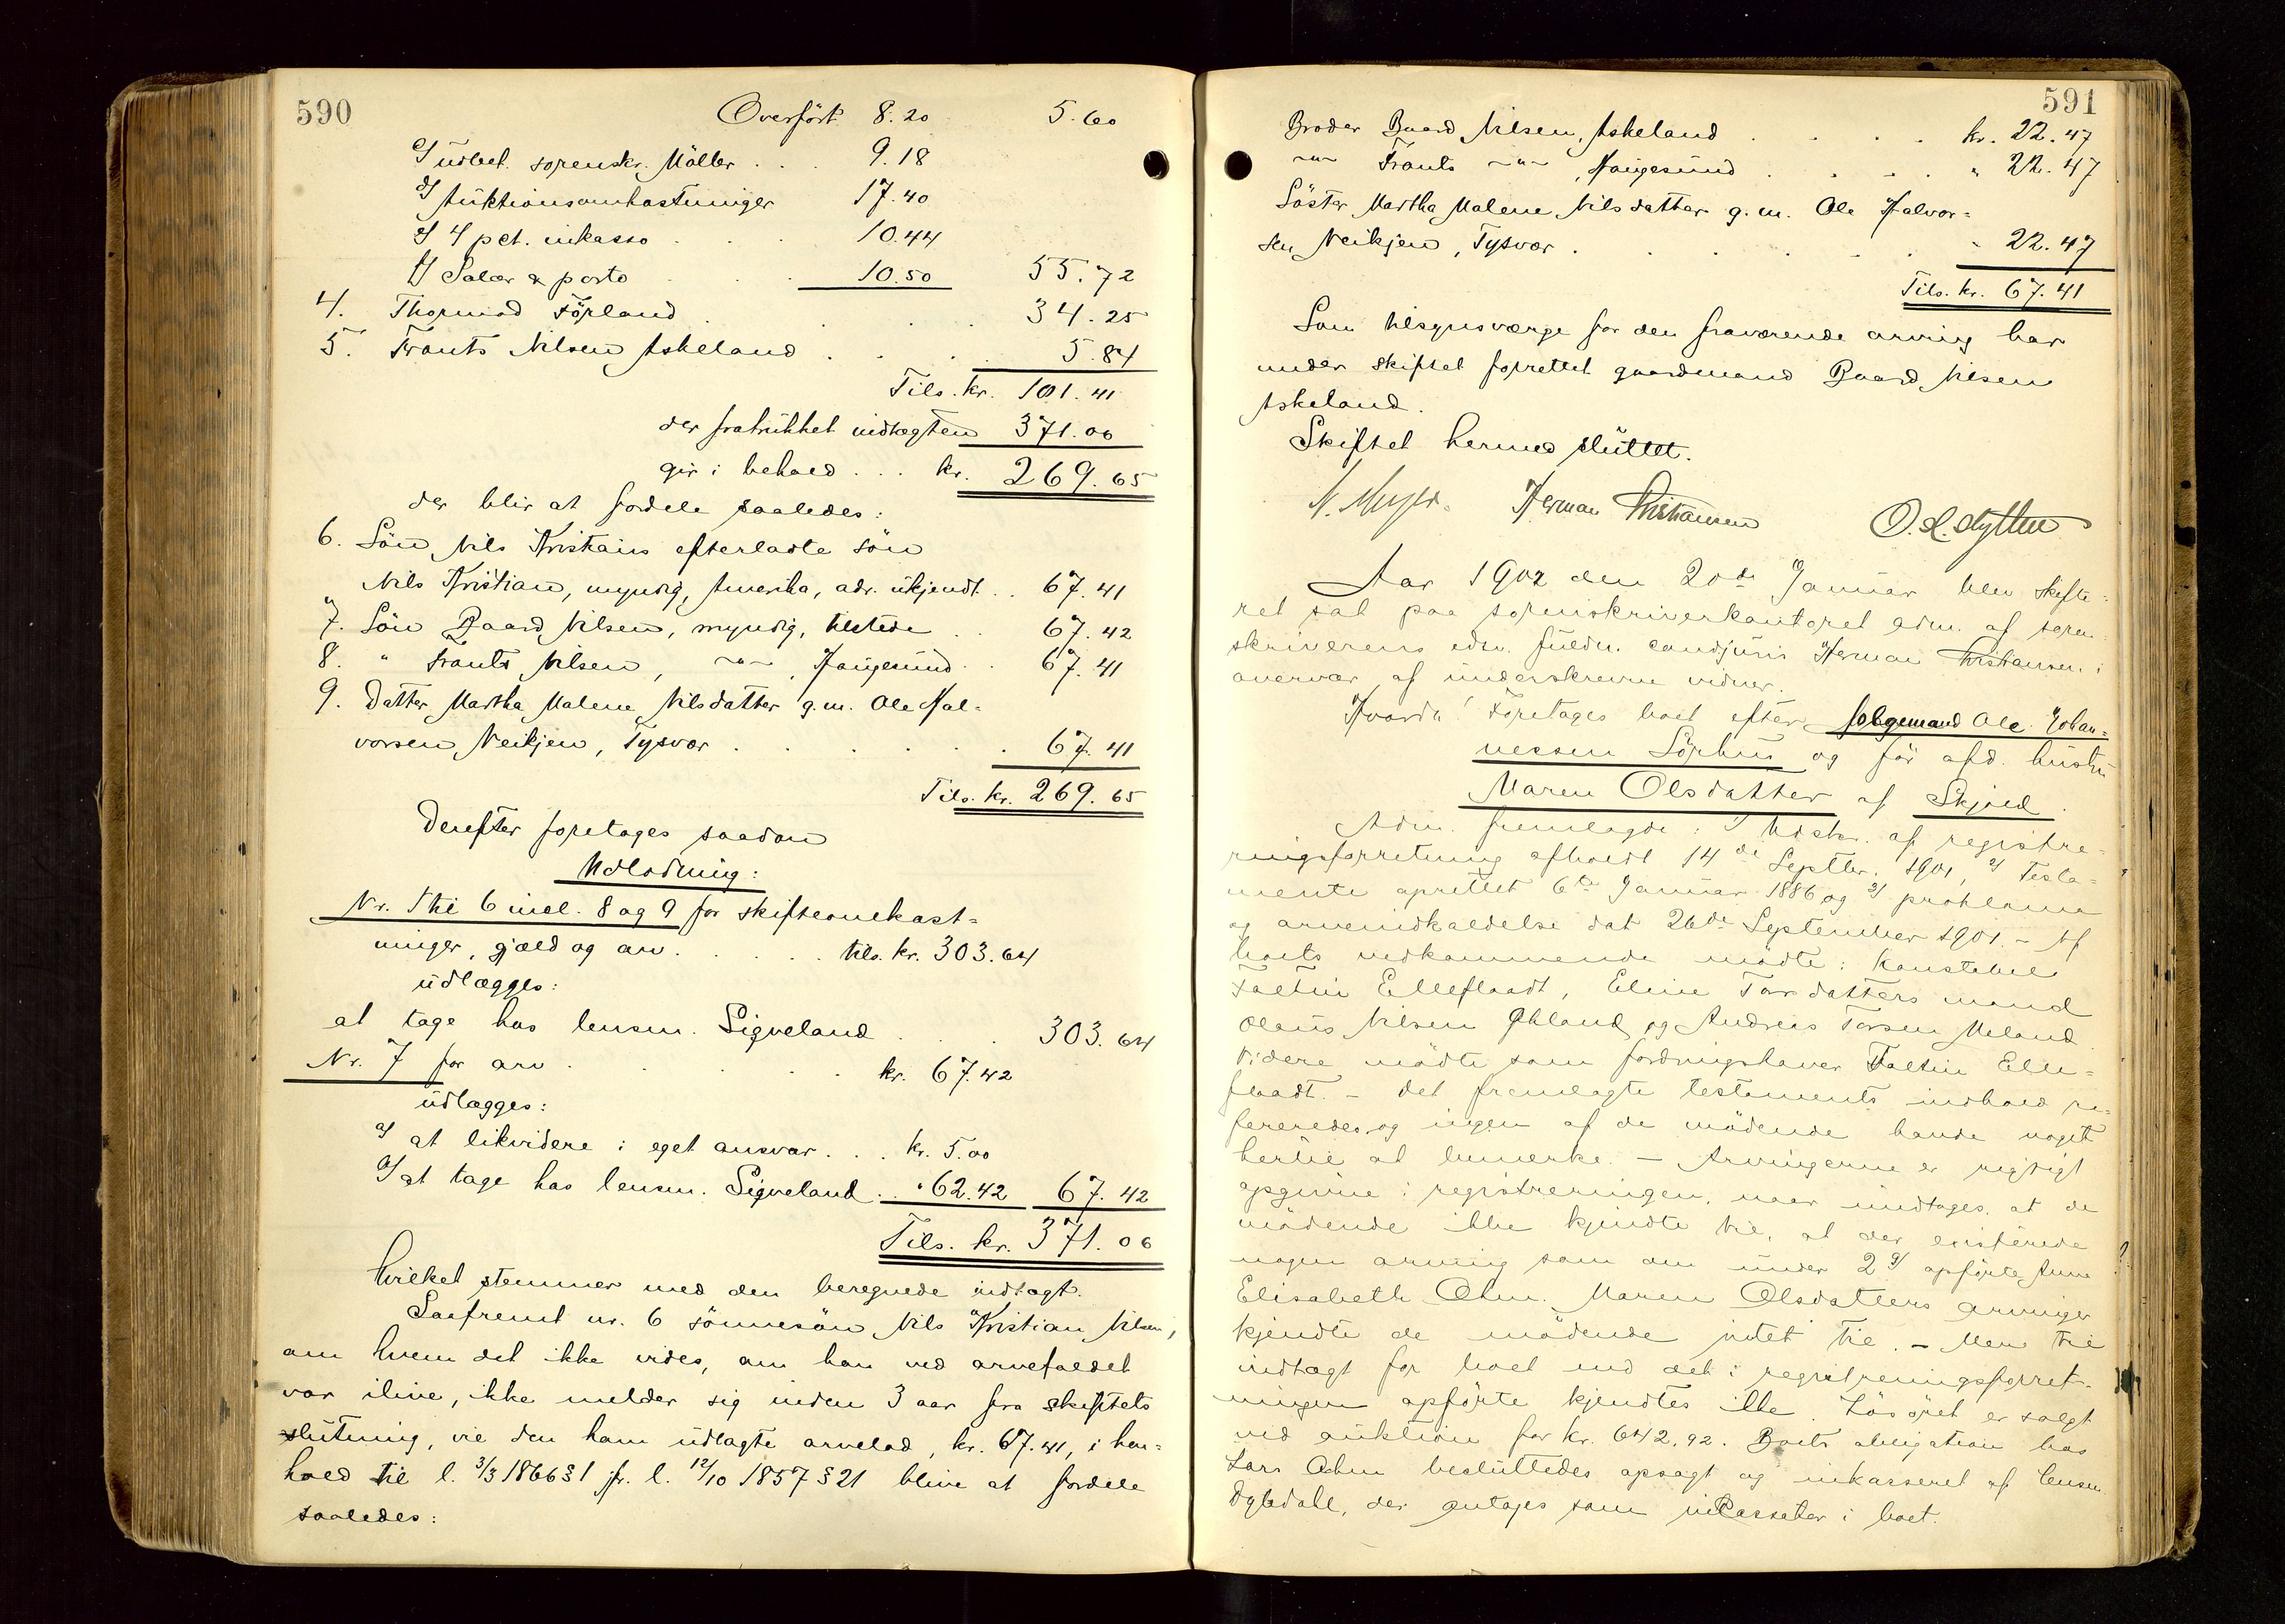 590
Overført 8.20 5.60
c/ udbet. sorenskr. Møller . . . 9.18
d/ Auktionsomkostninger 17.40
e/ 4 pct. inkasso . . . 10.44
f/ Salær & porto . . 10.50 55.72
4. Thormod Førland . . . . 34.25
5. Frants Nilsen Askeland . . . . 5.84
Tils. kr. 101.41
der fratrukket indtægten 371.06
gir i behold . . . kr. 269.65
der blir at fordele saaledes:
6. Søn Nils Kristians efterladte søn
Nils Kristian, myndig, Amerika, adr. ukjendt . . 67.41
7. Søn Baard Nilsen, myndig, tilstede . . 67.42
8. " Frants Nilsen, –"–, Haugesund . . 67.41
9. Datter Martha Malene Nilsdatter g.m. Ole Hal-
vorsen Neikjen, Tysvær . . . . . . 67.41
Tils. kr. 269.65
Derefter foretages saadan
Udlodning:
Nr. 1 til 6 incl. 8 og 9 for skifteomkost-
ninger, gjæld og arv . . . . . tils. kr. 303.64
udlægges:
at tage hos lensm. Sigveland . . . 303.64
Nr. 7 for arv . . . . . . kr. 67.42
udlægges:
a/ at likvidere i eget ansvar . . . kr. 5.00
b/ at tage hos lensm. Sigveland . . " 62.42 67.42
Tils. kr. 371.06
hvilket stemmer med den beregnede indtægt.
Saafremt nr. 6 sønnesøn Nils Kristian Nilsen,
om hvem det ikke vides, om han ved arvefaldet
var ilive, ikke melder sig inden 3 aar fra skiftets
slutning, vil den ham udlagte arvelod, kr. 67.41, i hen-
hold til l. 3/3 1866 § 1 jfr. l. 12/10 1857 § 21 blive at fordele
saaledes:
591
Broder Baard Nilsen, Askeland . . . . kr. 22.47
–"– Frants –"–, Haugesund . . . . " 22.47
Søster Martha Malene Nilsdatter g.m. Ole Halvor-
sen Neikjen, Tysvær . . . . . . " 22.47
Tils. kr. 67.41
Som tilsynsværge for den fraværende arving har
under skiftet forrettet gaardmand Baard Nilsen
Askeland.
Skiftet hermed sluttet.
N. Meyer. Herman Christiansen
Aar 1902 den 20de Januar blev skifte-
ret sat paa sorenskriverkontoret adm. af soren-
skriverens edsv. fuldm. cand juris Herman Christiansen i
overvær af underskrevne vidner.
Hvorda! Foretages boet efter folgemand Ole Johan-
nessen Sørhus og før afd. hustru
Maren Olsdatter af Skjold.
Adm. fremlagde: 1/ Udskr. af registre-
ringsforretning afholdt 14de Septbr. 1901, 2/ Testa-
mente oprettet 6te Januar 1886 og 3/ proklama
og arveindkaldelse dat 26de September 1901. – Af
boets vedkommende mødte: Konstabel
Faltin Elleflaadt, Eline Torsdatters mand
Olaus Nilsen Øhland og Andreas Torsen Meland.
Videre mødte som fordringshaver Faltin Elle-
flaadt. – Det fremlagte testaments indhold re-
fereredes, og ingen af de mødende havde noget
hertil at bemerke. – Arvingerne er rigtigt
opgivne i registreringen, naar undtages, at de
mødende ikke kjendte til, at der existerede
nogen arving som den under 2 g/ opførte Anne
Elisabeth Ohm. Maren Olsdatters arvinger
kjendte de mødende intet til. – Mere til
indtægt for boet end det i registreringsforret-
ningen opførte kjendtes ikke. Løsøret er solgt
ved auktion for kr. 642,92. Boets obligation hos
Lars Ohm besluttedes opsagt og inkasseret af lensm.
Dybdahl, der antages som inkassator i boet.